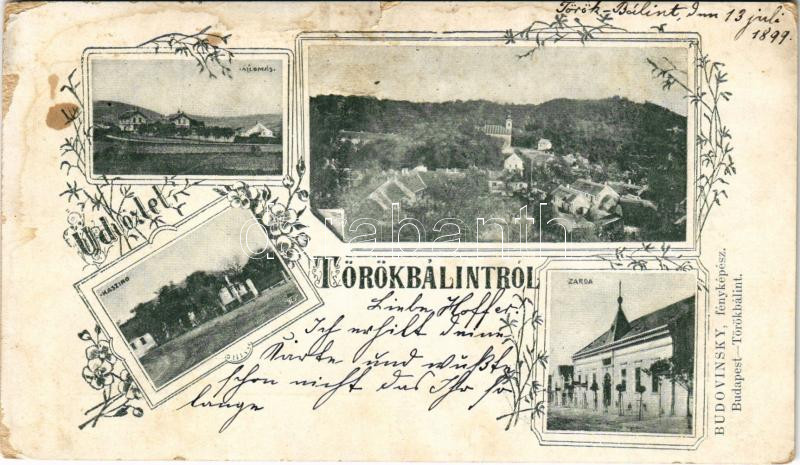 Török-Bálint, den 13 juli
1899.
ÁLLOMÁS.
Üdvözlet
KASZINO
TÖRÖKBÁLINTRÓL
ZÁRDA
Liebe Hoffer.
Ich erhilt deine
Karte und wußt
schon nicht das Ihr so
lange
BUDOVINSKY, fényképész.
Budapest—Törökbálint.
darabanth